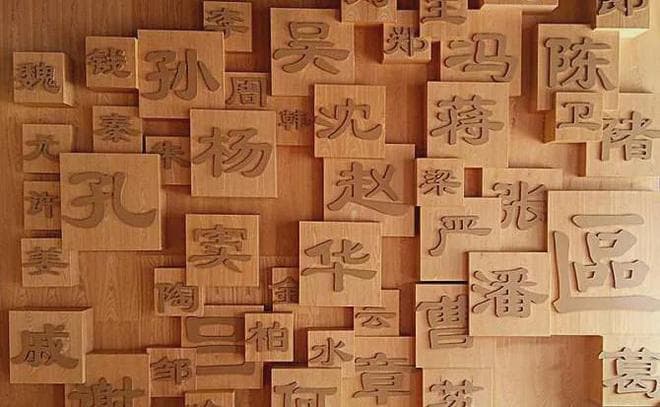 李
吴
郑
冯
陈
魏
钱
孙
周
韩
沈
蒋
卫
褚
秦
朱
杨
尤
赵
梁
张
许
孔
严
姜
窦
华
區
陶
金
云
曹
潘
戚
柏
水
邹
谢
何
章
葛
苏